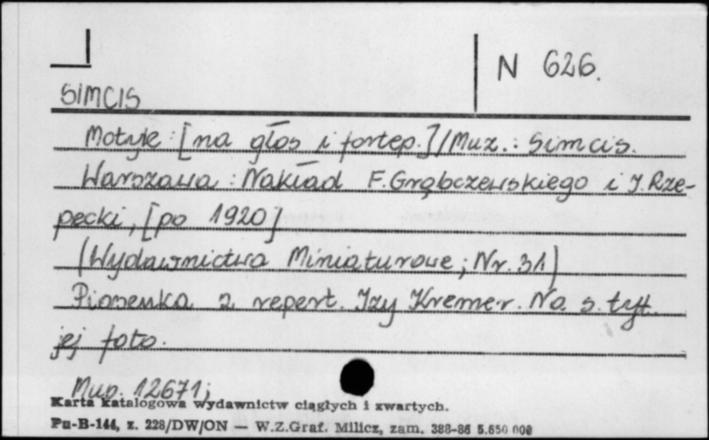 N 626.
SIMCIS
Motyle : [na głos i fortep.] / Muz. : Simcis.
Warszawa : Nakład F. Grąbczewskiego i J. Rze-
pecki, [po 1920]
(Wydawnictwa Miniaturowe ; Nr. 31)
Piosenka z repert. Izy Kremer. Na s. tyt.
jej foto.
Mus. 12671;
Karta katalogowa wydawnictw ciągłych i zwartych.
Pu-B-144, z. 228/DW/ON — W.Z.Graf. Milicz, zam. 388-86 5.650 000